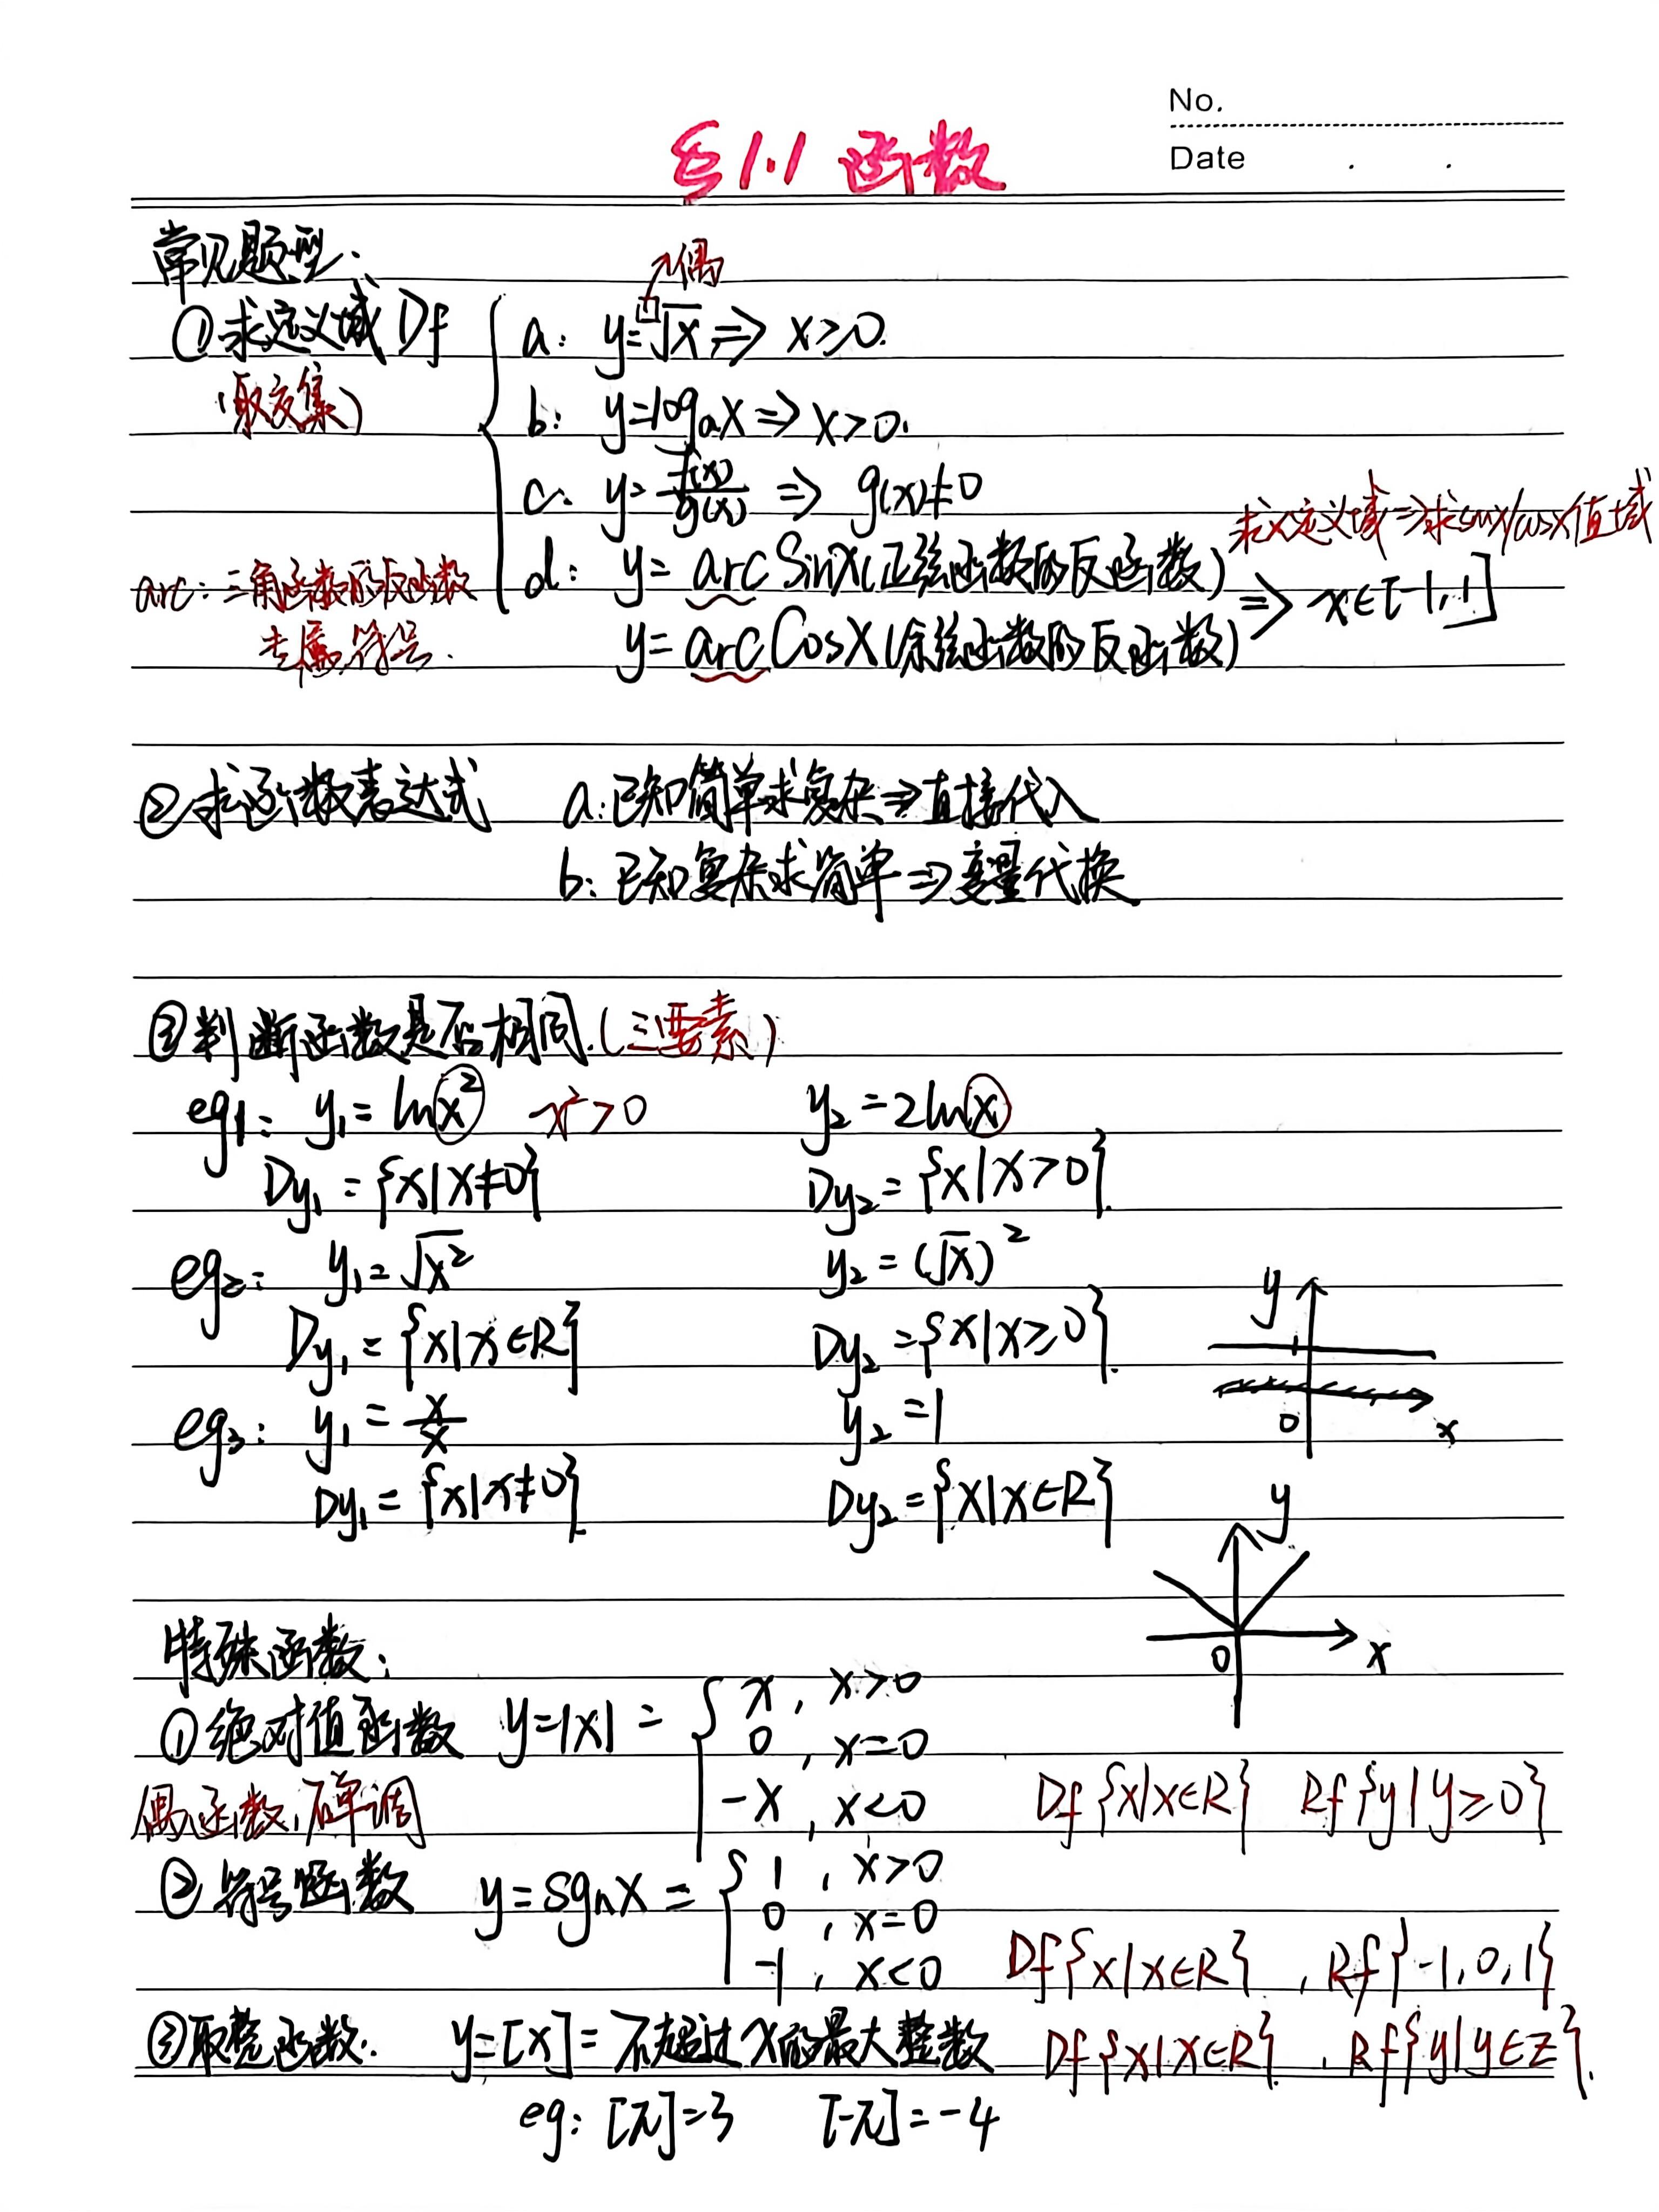 No.
Date
§1.1 函数
常见题型:
偶
①求定义域 Df
(取交集)
a: y=□√x ⇒ x≥0.
b: y=logₐx ⇒ x>0.
c: y=f(x)/g(x) ⇒ g(x)≠0
求x定义域⇒求sinx/cosx值域
d: y=arcSinx(正弦函数的反函数)
y=arcCosx(余弦函数的反函数) ⇒ x∈[-1,1]
arc:三角函数的反函数
专属符号.
②求函数表达式 a:已知简单求复杂⇒直接代入
b:已知复杂求简单⇒变量代换
③判断函数是否相同.(三要素)
eg1: y₁=lnx² x²>0 y₂=2lnx
Dy₁={x|x≠0} Dy₂={x|x>0}.
eg2: y₁=√x² y₂=(√x)²
Dy₁={x|x∈R} Dy₂={x|x≥0}.
eg3: y₁=x/x y₂=1
Dy₁={x|x≠0}. Dy₂={x|x∈R}
y
0
x
y
0
x
特殊函数:
①绝对值函数 y=|x|= { x, x>0
0, x=0
-x, x<0
Df{x|x∈R} Rf{y|y≥0}
偶函数,不单调
②符号函数 y=sgnx= { 1, x>0
0, x=0
-1, x<0
Df{x|x∈R}, Rf{-1,0,1}
③取整函数. y=[x]=不超过x的最大整数 Df{x|x∈R}, Rf{y|y∈Z}.
eg: [π]=3 [-π]=-4